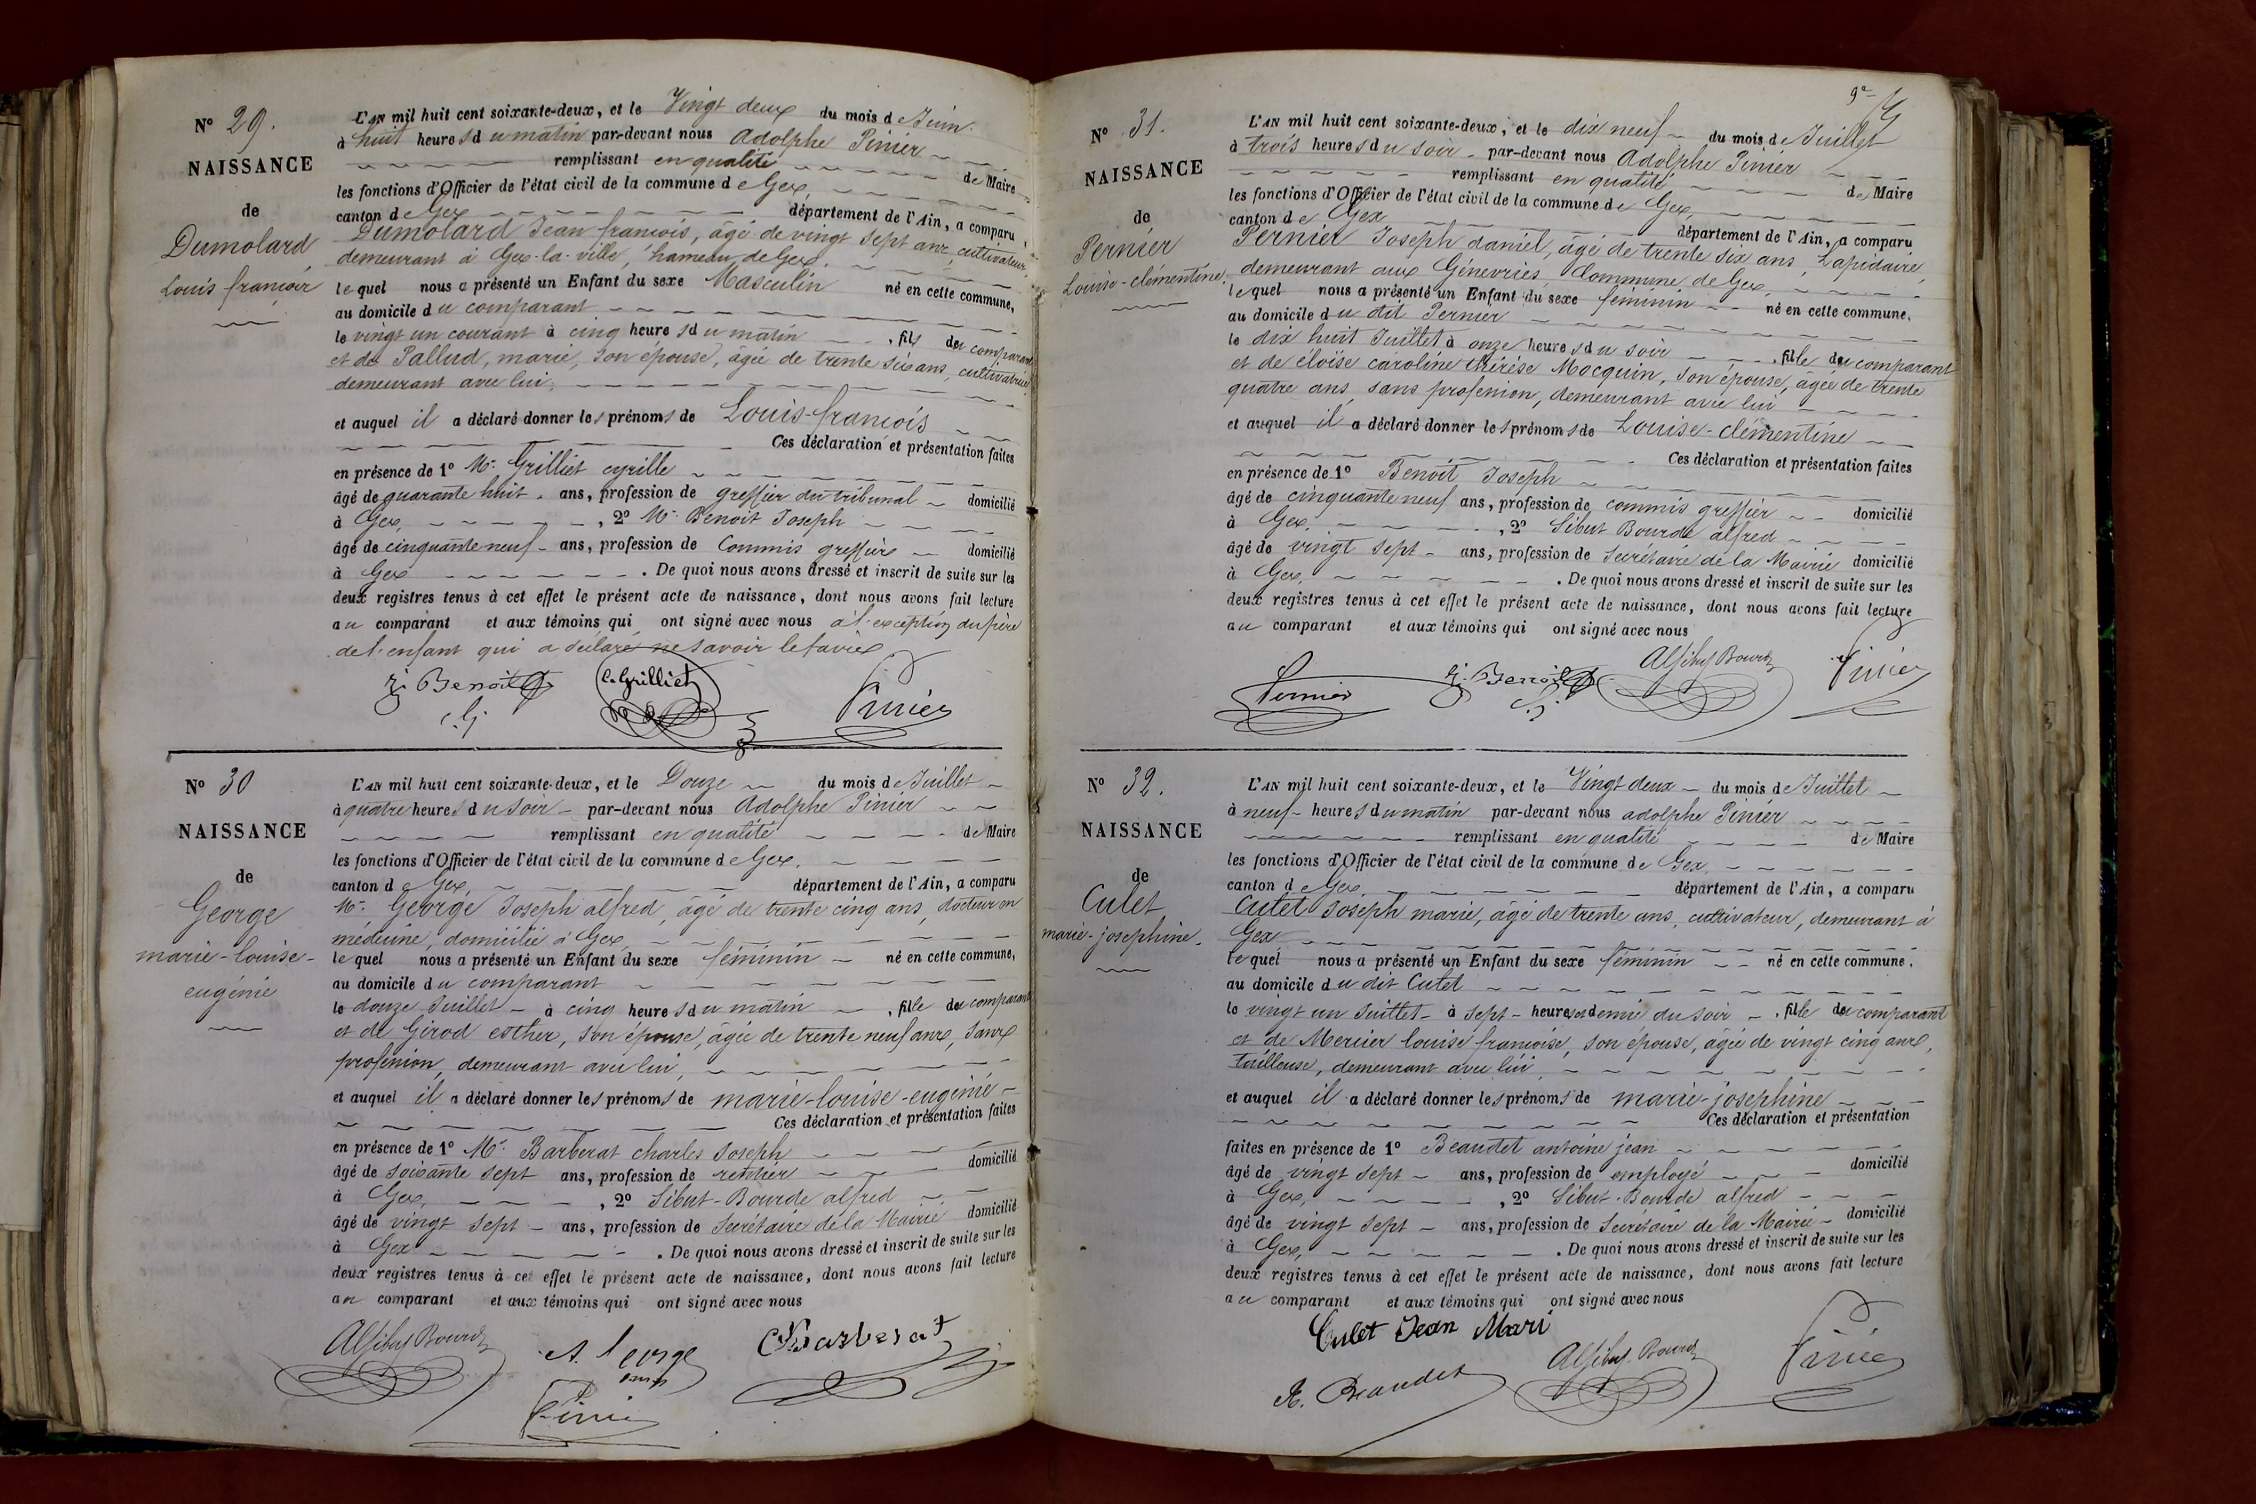 N° 29.
NAISSANCE
de
Dumolard
Louis françois
L'AN mil huit cent soixante-deux, et le Vingt deux du mois de Juin
à huit heures du matin par-devant nous Adolphe Pinier
remplissant en qualité de Maire
les fonctions d'Officier de l'état civil de la commune de Gex,
canton de Gex département de l'Ain, a comparu
Dumolard Jean françois, âgé de vingt sept ans, cultivateur
demeurant à Gex-la-ville, hameau de Gex.
lequel nous a présenté un Enfant du sexe Masculin né en cette commune,
au domicile du comparant
le vingt un courant à cinq heures du matin, fils du comparant
et de Pallud, marie, son épouse, âgée de trente six ans, cultivatrice
demeurant avec lui,
et auquel il a déclaré donner les prénoms de Louis-françois
Ces déclaration et présentation faites
en présence de 1° Mr. Grilliet cyrille
âgé de quarante huit ans, profession de greffier du tribunal domicilié
à Gex, , 2° Mr. Benoit Joseph
âgé de cinquante neuf ans, profession de Commis greffier domicilié
à Gex . De quoi nous avons dressé et inscrit de suite sur les
deux registres tenus à cet effet le présent acte de naissance, dont nous avons fait lecture
au comparant et aux témoins qui ont signé avec nous à l'exception du père
de l'enfant qui a déclaré ne savoir le faire
J. Benoit C. Grilliet Pinier
c. g.
N° 30
NAISSANCE
de
George
marie-louise-
eugénie
L'AN mil huit cent soixante-deux, et le Douze du mois de Juillet
à quatre heures du soir par-devant nous Adolphe Pinier
remplissant en qualité de Maire
les fonctions d'Officier de l'état civil de la commune de Gex.
canton de Gex, département de l'Ain, a comparu
Mr. George Joseph alfred, âgé de trente cinq ans, docteur en
médecine, domicilié à Gex,
lequel nous a présenté un Enfant du sexe féminin né en cette commune,
au domicile du comparant
le douze Juillet à cinq heures du matin , fille du comparant
et de Girod esther, son épouse, âgée de trente neuf ans, sans
profession, demeurant avec lui,
et auquel il a déclaré donner les prénoms de marie-louise-eugénie
Ces déclaration et présentation faites
en présence de 1° Mr. Barberat charles Joseph
âgé de soixante sept ans, profession de rentier domicilié
à Gex, , 2° Sibut-Bourde alfred
âgé de vingt sept ans, profession de Secrétaire de la Mairie domicilié
à Gex . De quoi nous avons dressé et inscrit de suite sur les
deux registres tenus à cet effet le présent acte de naissance, dont nous avons fait lecture
au comparant et aux témoins qui ont signé avec nous
A Sibut Bourde A. George Barberat
Pinier
9e
N° 31.
NAISSANCE
de
Pernier
Louise-clémentine.
L'AN mil huit cent soixante-deux, et le dix neuf du mois de Juillet
à trois heures du soir par-devant nous Adolphe Pinier
remplissant en qualité de Maire
les fonctions d'Officier de l'état civil de la commune de Gex,
canton de Gex département de l'Ain, a comparu
Pernier Joseph daniel, âgé de trente six ans, Lapidaire,
demeurant aux Génevriés, Commune de Gex,
lequel nous a présenté un Enfant du sexe féminin né en cette commune,
au domicile du dit Pernier
le dix huit Juillet à onze heures du soir , fille du comparant
et de éloïse caroline thérèse Mocquin, son épouse, âgée de trente
quatre ans, sans profession, demeurant avec lui
et auquel il a déclaré donner les prénoms de Louise-clémentine
Ces déclaration et présentation faites
en présence de 1° Benoit Joseph
âgé de cinquante neuf ans, profession de commis greffier domicilié
à Gex, , 2° Sibut Bourde alfred
âgé de vingt sept ans, profession de Secrétaire de la Mairie domicilié
à Gex, . De quoi nous avons dressé et inscrit de suite sur les
deux registres tenus à cet effet le présent acte de naissance, dont nous avons fait lecture
au comparant et aux témoins qui ont signé avec nous
Pernier J. Benoit A Sibut Bourde Pinier
N° 32.
NAISSANCE
de
Culet
marie-josephine.
L'AN mil huit cent soixante-deux, et le Vingt deux du mois de Juillet
à neuf heures du matin par-devant nous adolphe Pinier
remplissant en qualité de Maire
les fonctions d'Officier de l'état civil de la commune de Gex
canton de Gex, département de l'Ain, a comparu
Culet Joseph marie, âgé de trente ans, cultivateur, demeurant à
Gex
lequel nous a présenté un Enfant du sexe féminin né en cette commune,
au domicile du dit Culet
le vingt un Juillet à sept heures et demie du soir , fille du comparant
et de Mercier louise françoise, son épouse, âgée de vingt cinq ans,
tailleuse, demeurant avec lui,
et auquel il a déclaré donner les prénoms de marie-josephine
Ces déclaration et présentation
faites en présence de 1° Beaudet antoine jean
âgé de vingt sept ans, profession de employé domicilié
à Gex, , 2° Sibut-Bourde alfred
âgé de vingt sept ans, profession de Secrétaire de la Mairie domicilié
à Gex, . De quoi nous avons dressé et inscrit de suite sur les
deux registres tenus à cet effet le présent acte de naissance, dont nous avons fait lecture
au comparant et aux témoins qui ont signé avec nous
Culet Jean Mari
A. Beaudet A Sibut Bourde Pinier